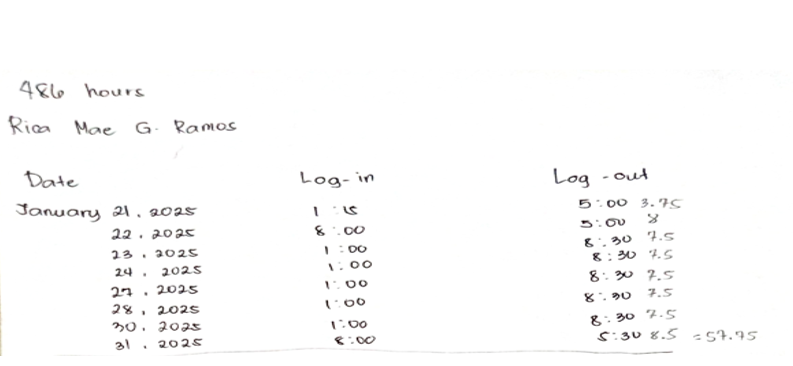 486 hours
Rica Mae G. Ramos
Date Log-in Log-out
January 21, 2025 1:15 5:00 3.75
22, 2025 8:00 5:00 8
23, 2025 1:00 8:30 7.5
24, 2025 1:00 8:30 7.5
27, 2025 1:00 8:30 7.5
28, 2025 1:00 8:30 7.5
30, 2025 1:00 8:30 7.5
31, 2025 8:00 5:30 8.5 =57.75